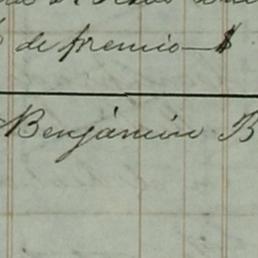 de premio — $
Benjamin B